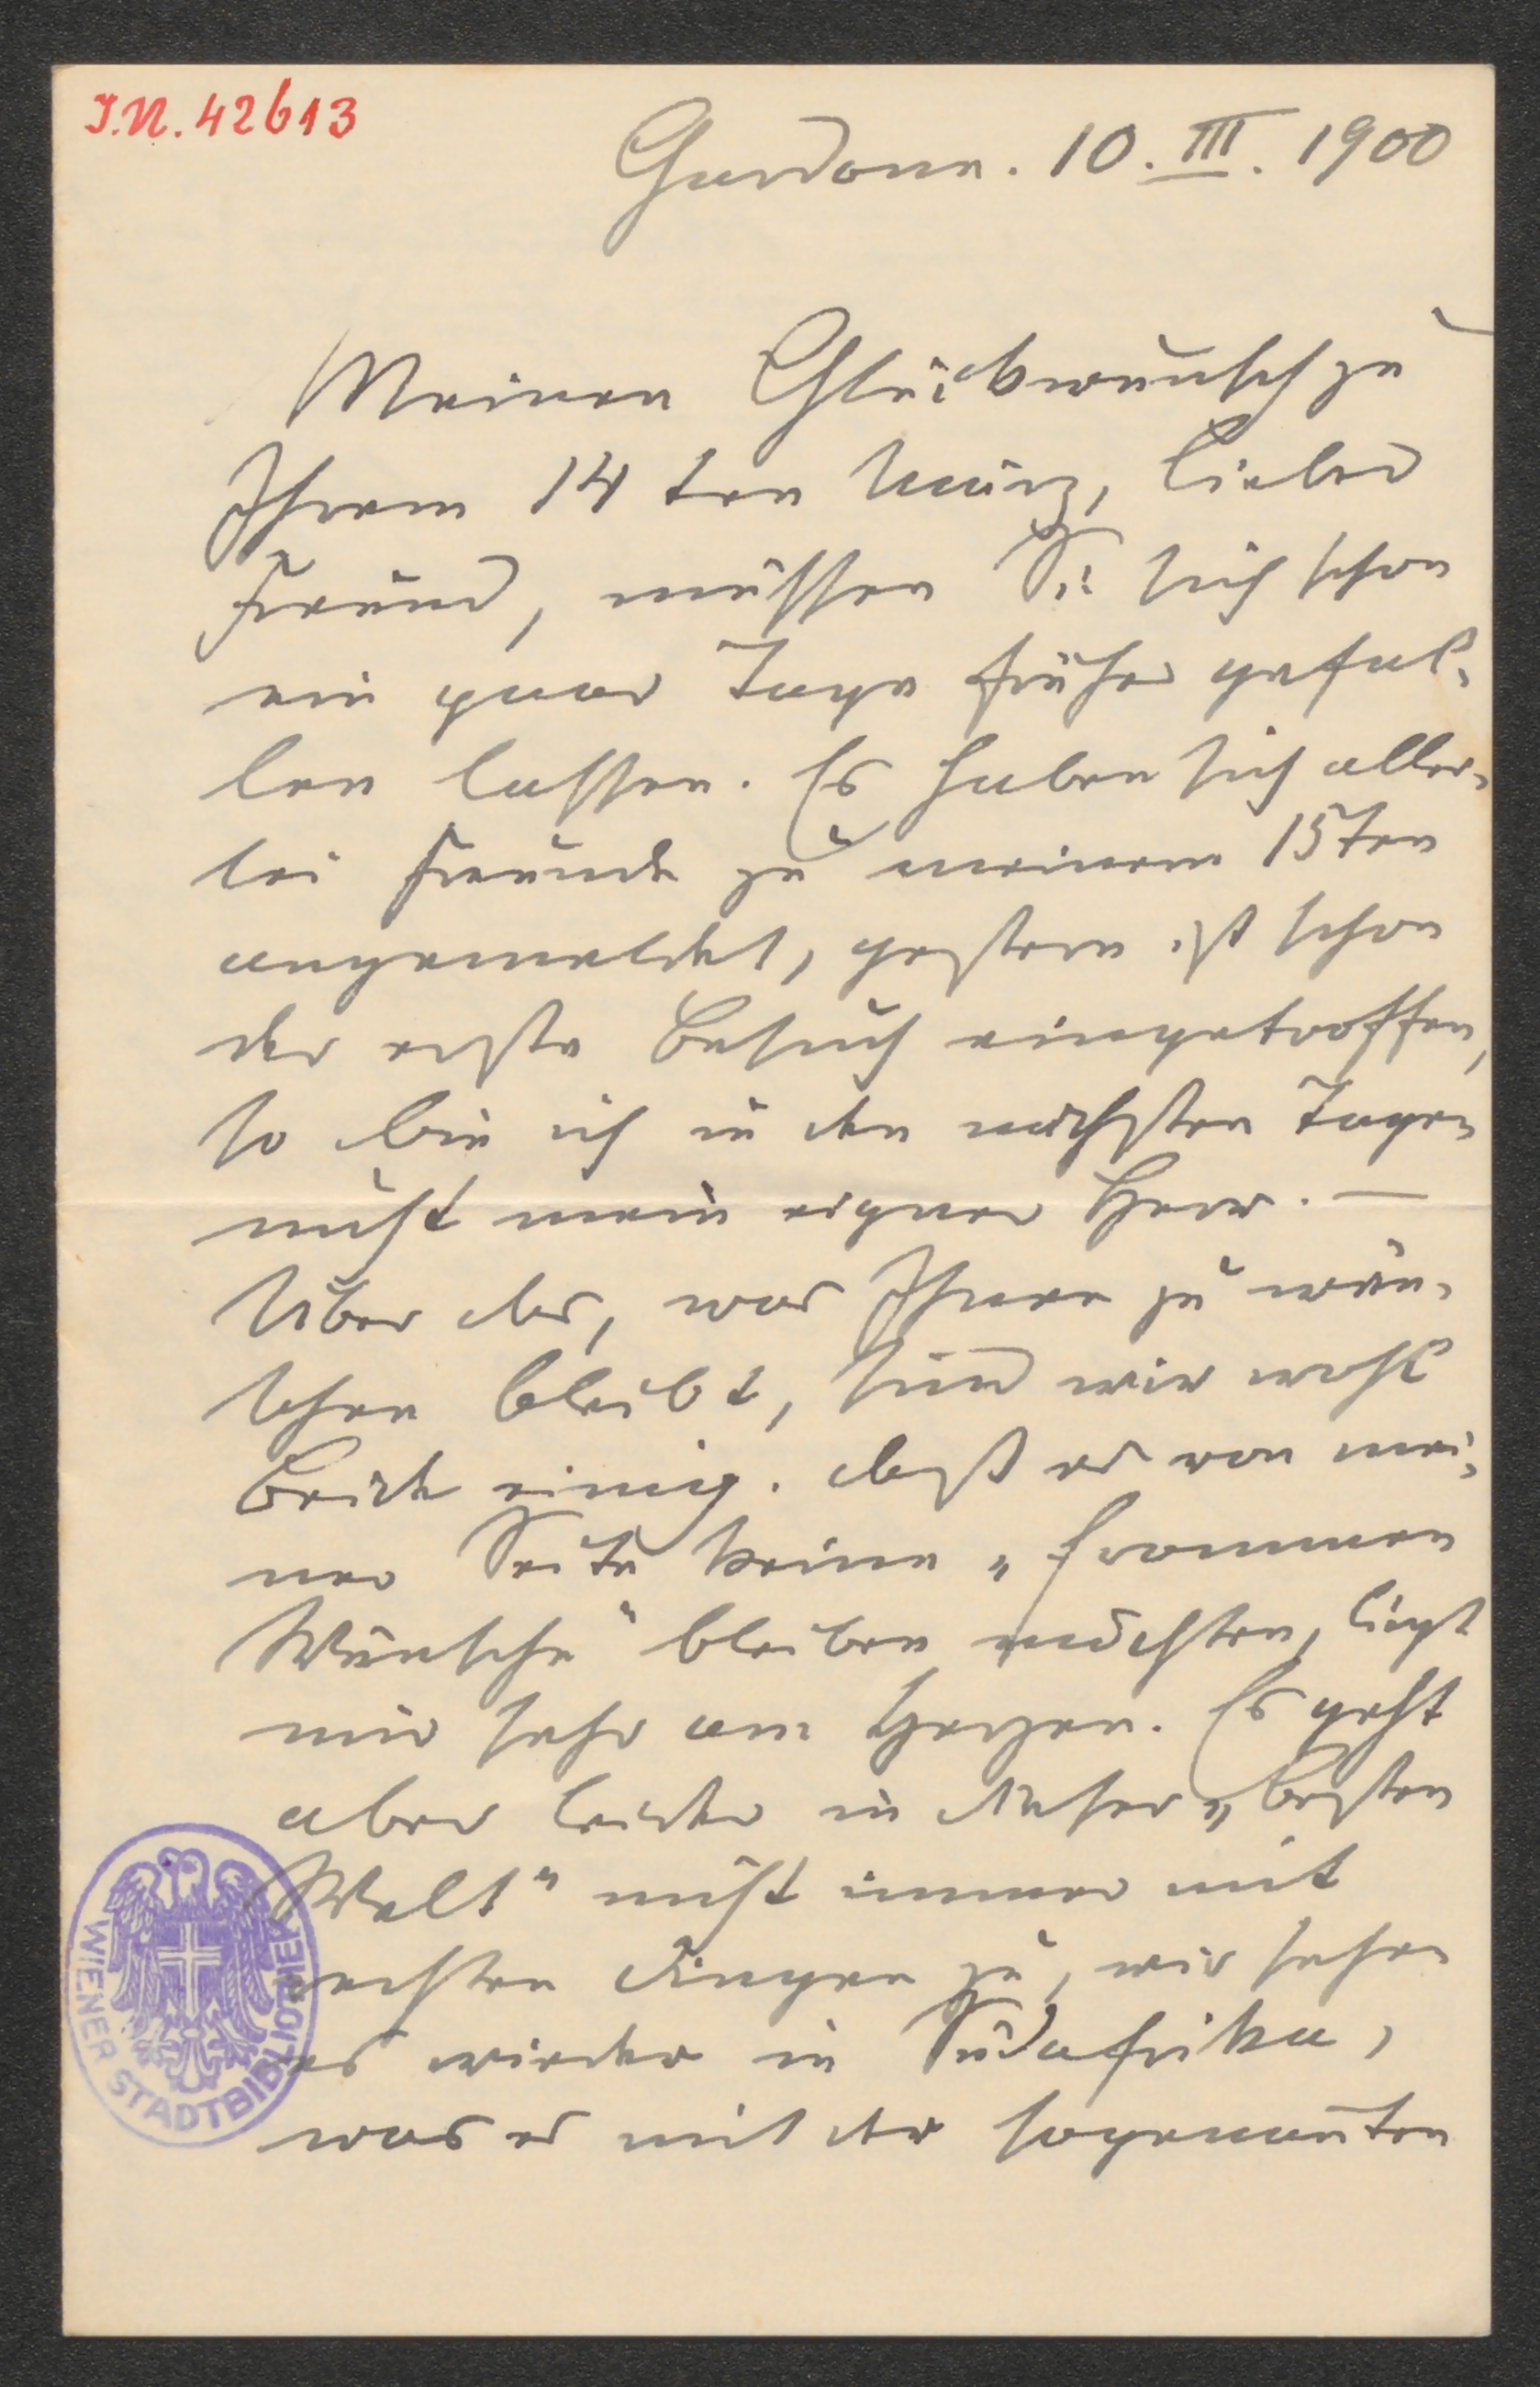 I.N. 42613
Gardone. 10. III. 1900
Meinen Glückwunsch zu
Ihrem 14ten März, lieber
Freund, müssen Sie sich schon
ein paar Tage früher gefal-
len lassen. Es haben sich aller-
lei Freunde zu meinem 15ten
angemeldet, gestern ist schon
der erste Besuch eingetroffen,
so bin ich in den nächsten Tagen
nicht mein eigner Herr. —
Über das, was Ihnen zu wün-
schen bleibt, sind wir wohl
Beide einig. Daß es von mei-
ner Seite keine „frommen
Wünsche" bleiben möchten, liegt
mir sehr am Herzen. Es geht
aber leider in dieser „besten
Welt" nicht immer mit
rechten Dingen zu, wir sehen
es wieder in Südafrika,
was es mit der sogenannten
WIENER STADTBIBLIOTHEK